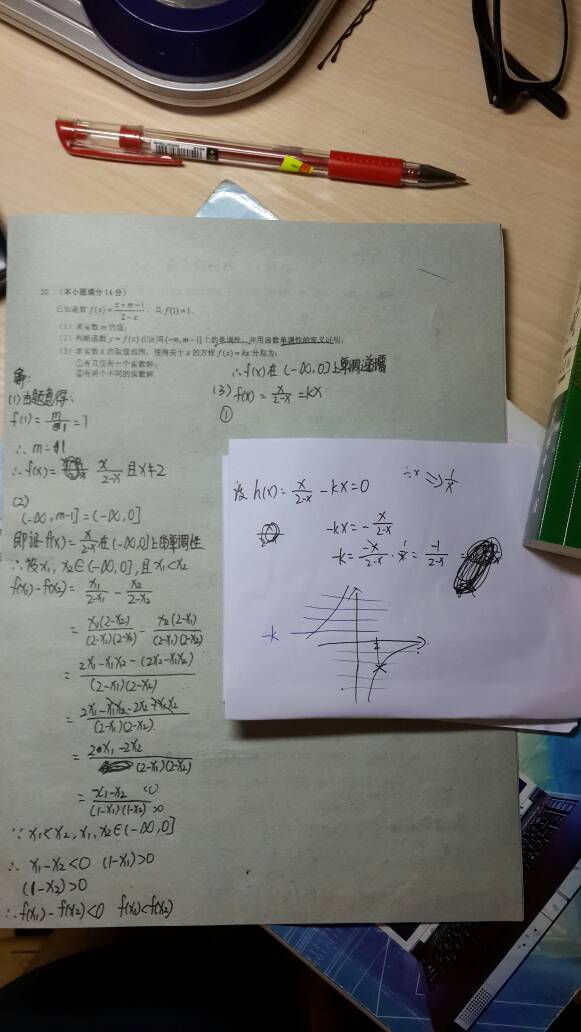 20. (本小题满分14分)
已知函数 f(x)=\frac{x+m-1}{2-x}, 且 f(1)=1.
(1) 求实数 m 的值;
(2) 判断函数 y=f(x) 在区间 (-∞, m-1] 上的单调性, 并用函数单调性的定义证明;
(3) 求实数 k 的取值范围, 使得关于 x 的方程 f(x)=kx 分别为:
①有且仅有一个实数解;
②有两个不同的实数解.
解:
(1) 由题意得
f(1)=\frac{m}{1}=1
∴ m=1
∴ f(x)= \frac{x}{2-x} 且 x≠2
(2)
(-∞, m-1]=(-∞, 0]
即证 f(x)=\frac{x}{2-x} 在(-∞, 0]上的单调性
∴ 设 x₁, x₂∈(-∞, 0], 且 x₁<x₂
f(x₁)-f(x₂)= \frac{x₁}{2-x₁} - \frac{x₂}{2-x₂}
= \frac{x₁(2-x₂)}{(2-x₁)(2-x₂)} - \frac{x₂(2-x₁)}{(2-x₁)(2-x₂)}
= \frac{2x₁-x₁x₂-(2x₂-x₁x₂)}{(2-x₁)(2-x₂)}
= \frac{2x₁-x₁x₂-2x₂+x₁x₂}{(2-x₁)(2-x₂)}
= \frac{2x₁-2x₂}{(2-x₁)(2-x₂)}
= \frac{x₁-x₂}{(1-x₁)(1-x₂)} <0 >0
∵ x₁<x₂, x₁, x₂∈(-∞, 0]
∴ x₁-x₂<0 (1-x₁)>0
(1-x₂)>0
∴ f(x₁)-f(x₂)<0 f(x₁)<f(x₂)
∴ f(x)在(-∞, 0]上单调递增
(3) f(x)= \frac{x}{2-x} =kx
①
设 h(x)= \frac{x}{2-x} -kx=0
÷x ⇒ \frac{1}{x}
-kx=- \frac{x}{2-x}
-k= \frac{-x}{2-x} · \frac{1}{x} = \frac{-1}{2-x} =
-k
2